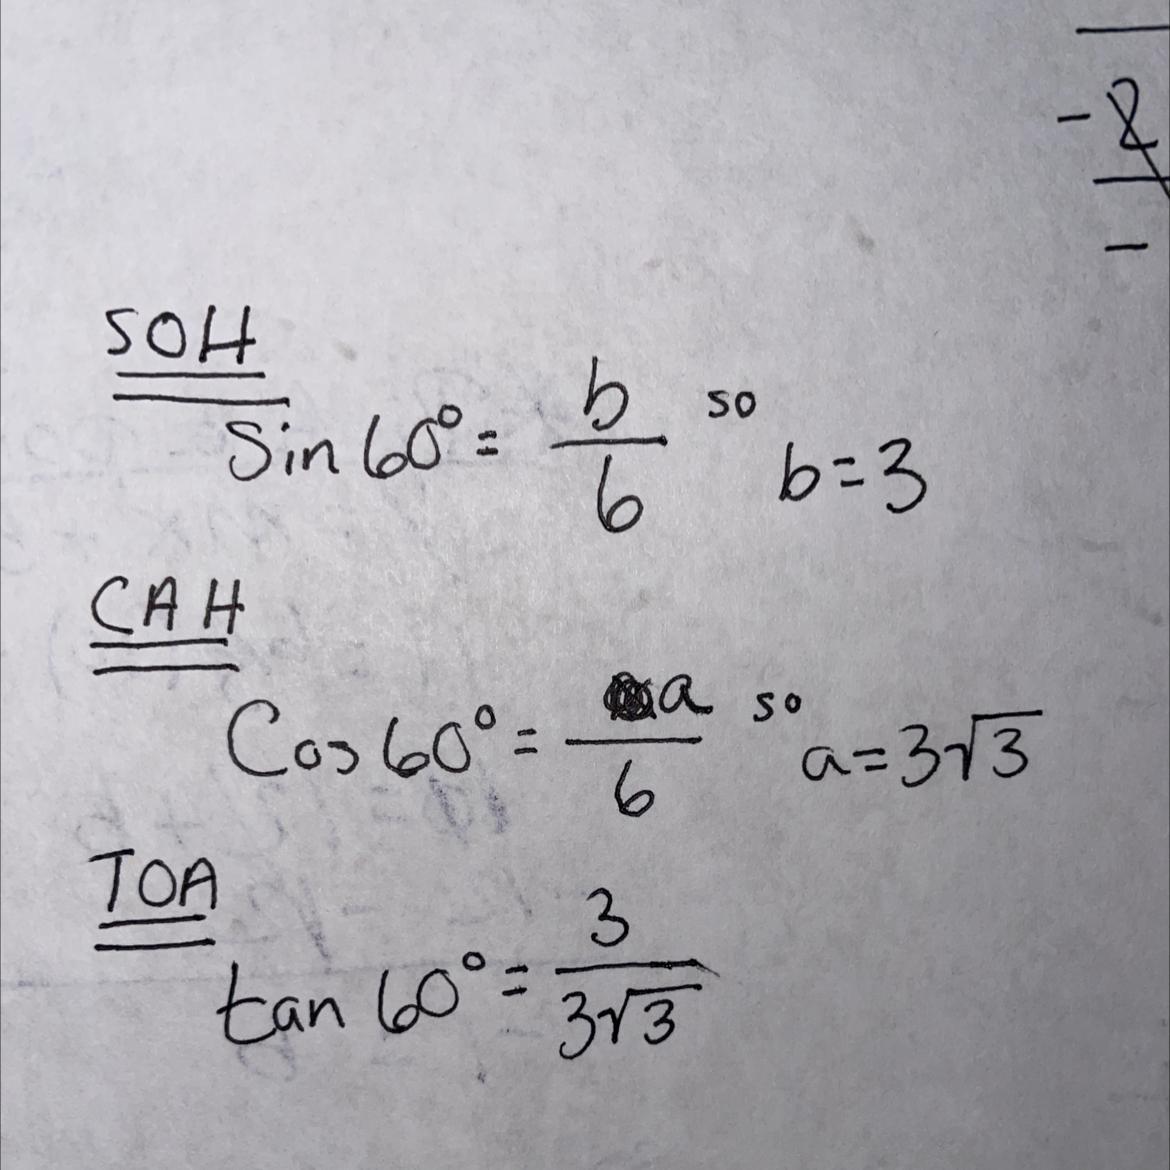 -2
-
SOH
Sin 60° = b/6 so b = 3
CAH
Cos 60° = a/6 so a = 3√3
TOA
tan 60° = 3/3√3